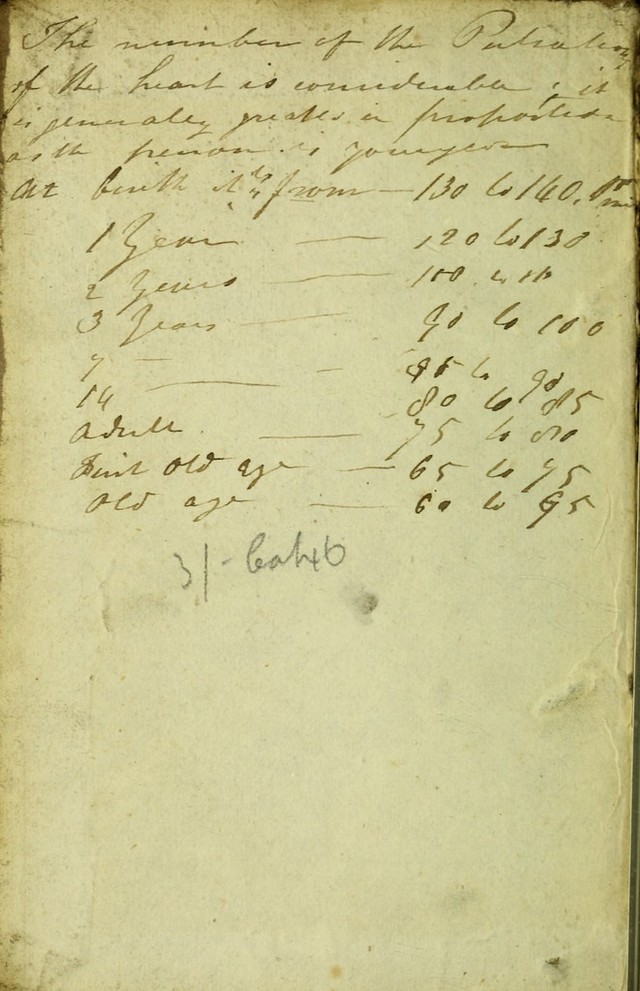 The number of the Pulsations
of the heart is considerable; it
is generaley greater in proportion
as the person is younger
At birth it is from — 130 to 140.
1 Year — 120 to 130
2 Years — 100 to 110
3 Years — 90 to 100
7 — — 85 to 90
14 — 80 to 85
adult — 75 to 80
First old age — 65 to 75
Old age — 60 to 65
3/- Cat46